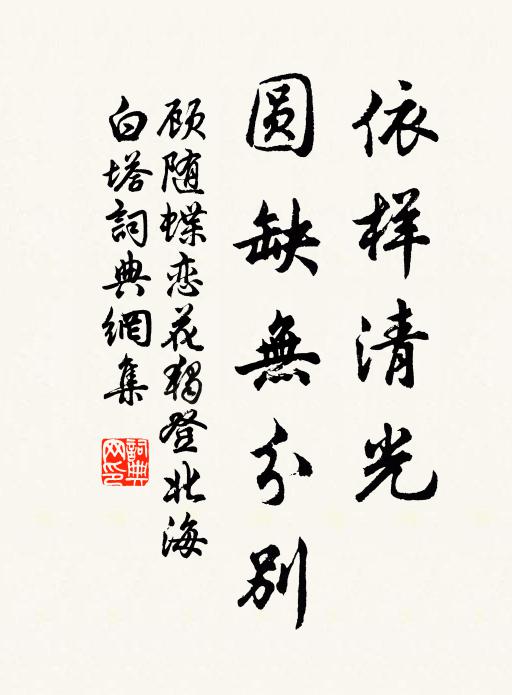 依样清光
圆缺無分别
顾随蝶恋花独登北海
白塔詞典網集
詞典网印